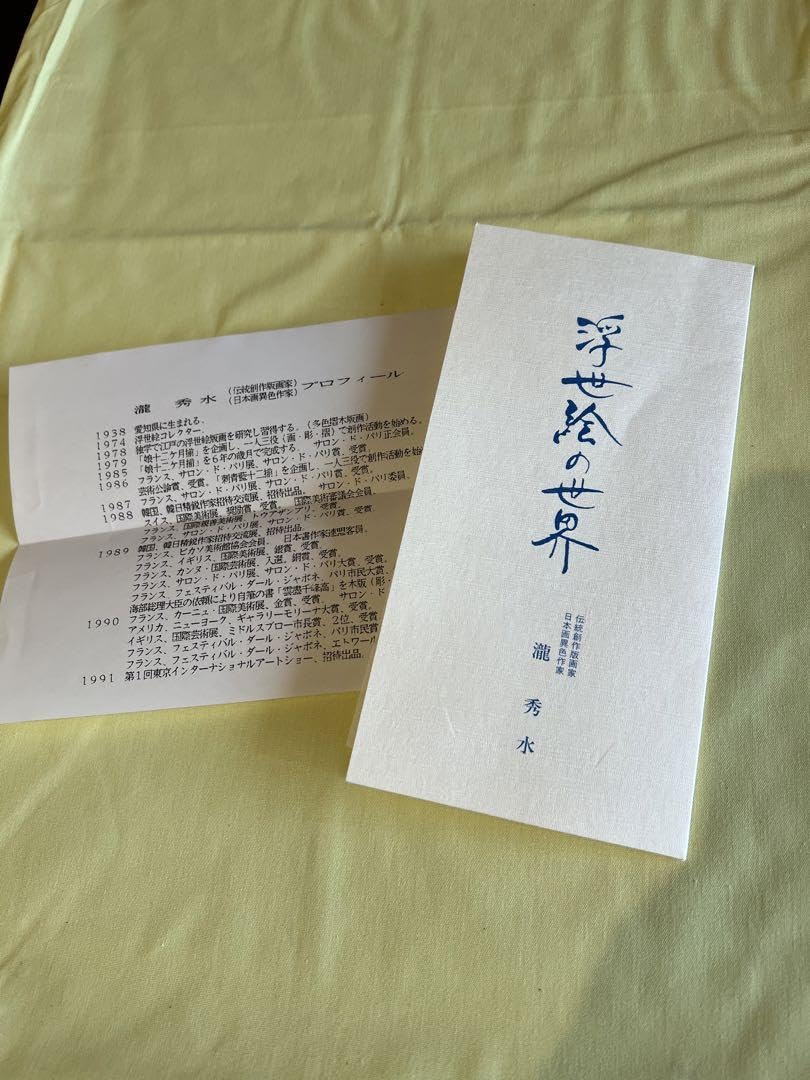 瀧 秀 水 (伝統創作版画家) (日本画異色作家) プロフィール
1938 愛知県に生まれる。
1974 浮世絵コレクター。
1978 独学で江戸の浮世絵版画を研究し習得する。(多色摺木版画)
1979 「娘十二ケ月揃」を企画し、一人三役(画・彫・摺)で創作活動を始める。
1985 「娘十二ケ月揃」を6年の歳月で完成する。 サロン・ド・パリ正会員。
1986 フランス、サロン・ド・パリ展、サロン・ド・パリ賞、受賞。
芸術公論賞、受賞。「刺青藝十二揃」を企画し、一人三役で創作活動を始め
フランス、サロン・ド・パリ展、サロン・ド・パリ賞、受賞。
1987 韓国、韓日精鋭作家招待交流展、招待出品。 サロン・ド・パリ委員。
1988 スイス、国際美術展、奨励賞 受賞。 国際美術審議会会員。
フランス、国際親善美術展、トウアザンアプリ、受賞。
フランス、サロン・ド・パリ展、サロン・ド・パリ賞、受賞。
1989 韓国、韓日精鋭作家招待交流展、招待出品。
フランス、ピカソ美術館協会会員。 日本書作家連盟客員。
フランス、イギリス、国際美術展、銀賞、受賞。
フランス、カンヌ・国際芸術展、入選、銅賞、受賞。
フランス、サロン・ド・パリ展、サロン・ド・パリ大賞、受賞。
フランス、フェスティバル・ダール・ジャポネ、パリ市民大賞、
海部総理大臣の依頼により自筆の書「雲盡千峰高」を木版(彫・
1990 フランス、カーニュ・国際美術展、金賞、受賞。 サロン・ド
アメリカ、ニューヨーク、ギャラリーモリーナ大賞、受賞。
イギリス、国際芸術展、ミドルスブロー市長賞、2位、受賞
フランス、フェスティバル・ダール・ジャポネ、パリ市民賞
フランス、フェスティバル・ダール・ジャポネ、エトワール
1991 第1回東京インターナショナルアートショー、招待出品。
浮世絵の世界
伝統創作版画家
日本画異色作家
瀧 秀 水